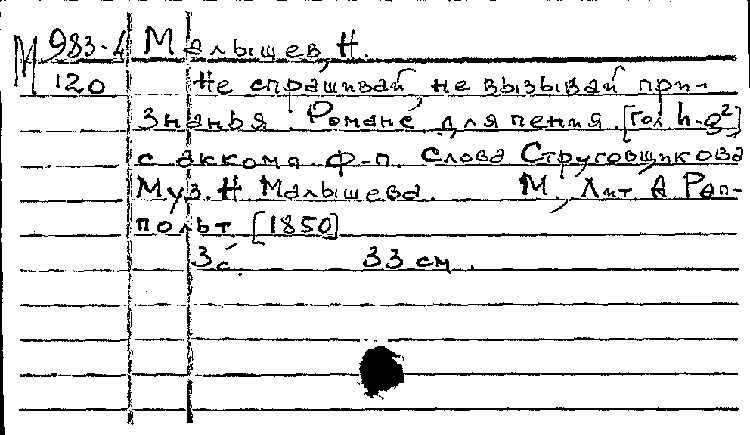 М 983-4 Малышев, Н.
120 Не спрашивай, не вызывай при-
знанья. Романс для пения [гол h-g²]
с аккомп. ф-п. Слова Струговщикова
Муз. Н Малышева. М., Лит А Рап-
польт [1850]
3 с. 33 см.